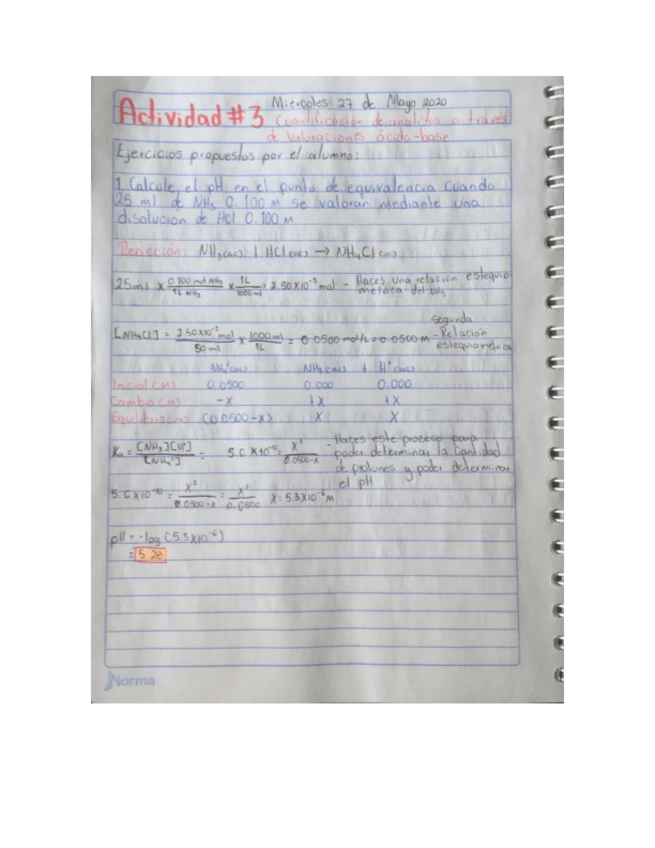 Miercoles 27 de Mayo 2020
Actividad #3 Cuantificación de analitos a través
de valoraciones ácido-base
Ejercicios propuestos por el alumno:
1. Calcule el pH en el punto de equivalencia cuando
25 ml de NH3 0.100 M se valoran mediante una
disolucion de Hcl 0.100 M
Reacción: NH3(ac) + HCl(ac) → NH4Cl(ac)
25 ml x 0.100 mol NH3/1L NH3 x 1L/1000 ml = 2.50x10⁻³ mol - Haces una relación estequio-
metrica del NH3
segunda
[NH4Cl] = 2.50x10⁻³ mol/50 ml x 1000 ml/1L = 0.0500 mol/L = 0.0500 M - Relación
estequiometrica
NH4⁺(ac) NH3(ac) + H⁺(ac)
Inicial (M): 0.0500 0.000 0.000
Cambio (M): -x +x +x
Equilibrio (M): (0.0500-x) x x
Ka = [NH3][H⁺]/[NH4⁺] = 5.6x10⁻¹⁰ = x²/0.0500-x - Haces este proceso para
poder determinar la cantidad
de protones y poder determinar
el pH
5.6x10⁻¹⁰ = x²/0.0500-x = x²/0.0500 x = 5.3x10⁻⁶ M
pH = -log (5.3x10⁻⁶)
= 5.28
Norma